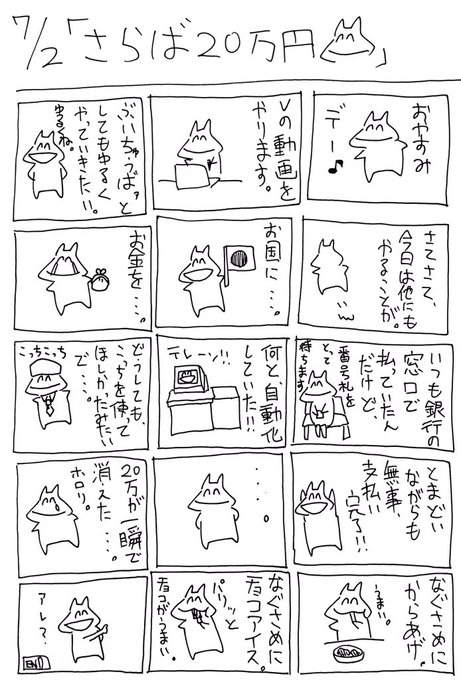 7/2「さらば20万円」
おやすみ
デー♪
Vの動画を
やります。
ぶいちゅうばぁと
してもゆるく
やっていきたい!!
ゆるくね。
さてさて、
今日は他にも
やることが。
お国に…。
お金を…。
いつも銀行の
窓口で
払っていたん
だけど、
番号札を
とって
待ちます
何と、自動化
していた!!
テレーン!!
どうしても、
こっちを使って
ほしかったみたい
で…。
こっちこっち
とまどい
ながらも
無事、
支払い
完了!!
・・・。
20万が一瞬で
消えた…。
ホロリ。
なぐさめに
からあげ。
うまい。
なぐさめに
チョコアイス。
パリッと
チョコがうまい。
アレ?
END